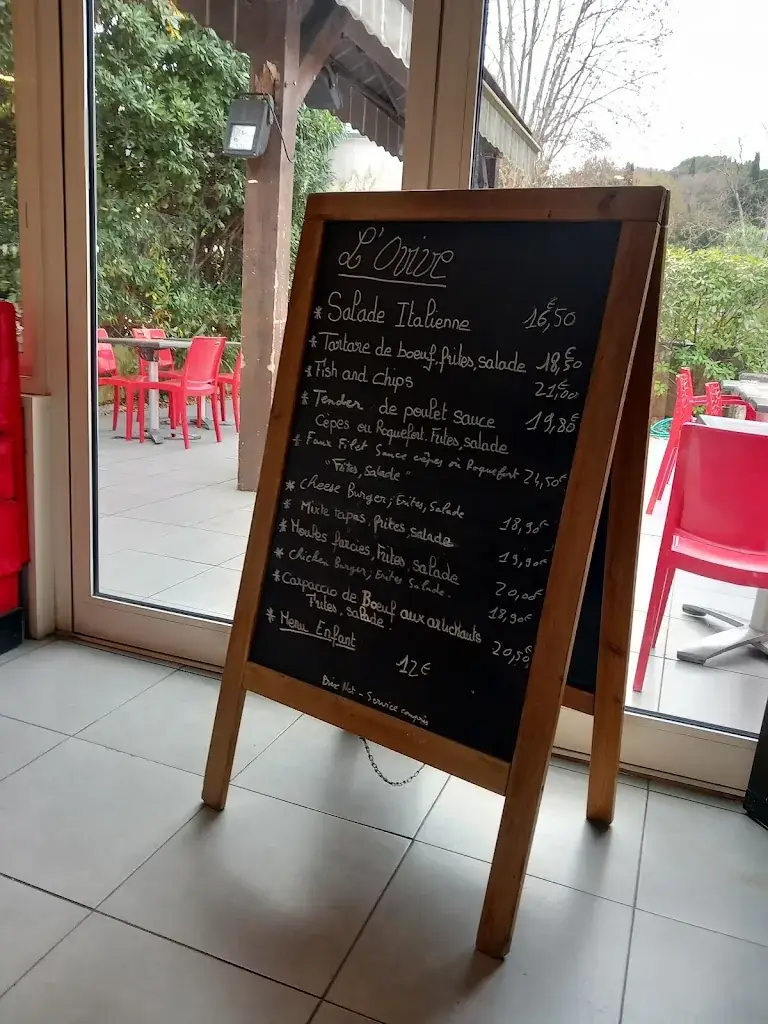 L'Ovive
* Salade Italienne 16,50€
* Tartare de boeuf, frites, salade 18,50€
* Fish and chips 21,00€
* Tender de poulet sauce 19,80€
Cèpes ou Roquefort. Frites, salade
* Faux Filet Sauce cèpes ou Roquefort 24,50€
"Frites, Salade"
* Cheese Burger, Frites, Salade 18,90€
* Mixte tapas, frites, salade 19,90€
* Moules farcies, Frites, salade 20,00€
* Chicken Burger, Frites Salade. 18,90€
* Carpaccio de Boeuf aux artichauts 20,50€
Frites, salade.
* Menu Enfant
12€
Prix Net - Service compris